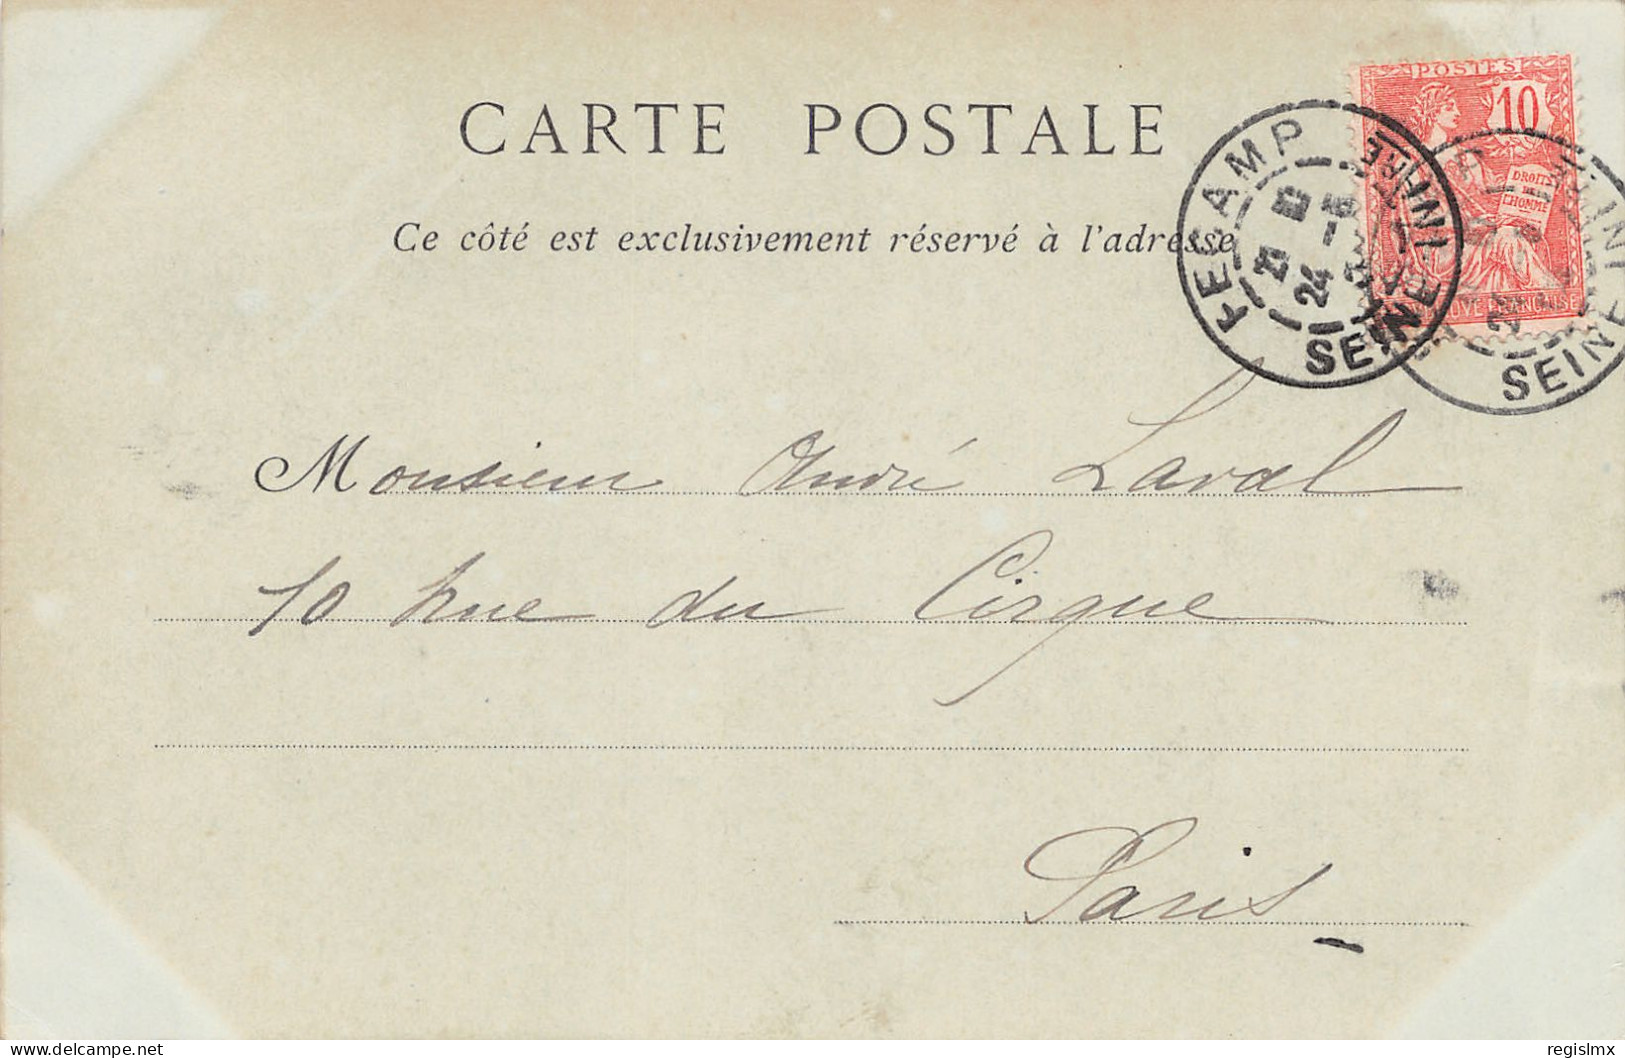 CARTE POSTALE
Ce côté est exclusivement réservé à l'adresse
POSTES
10
DROITS
DE
L'HOMME
FRANÇAISE
FECAMP
SEINE-INFRE
24
SEINE
Monsieur André Laval
10 rue du Cirque
Paris
regislmx